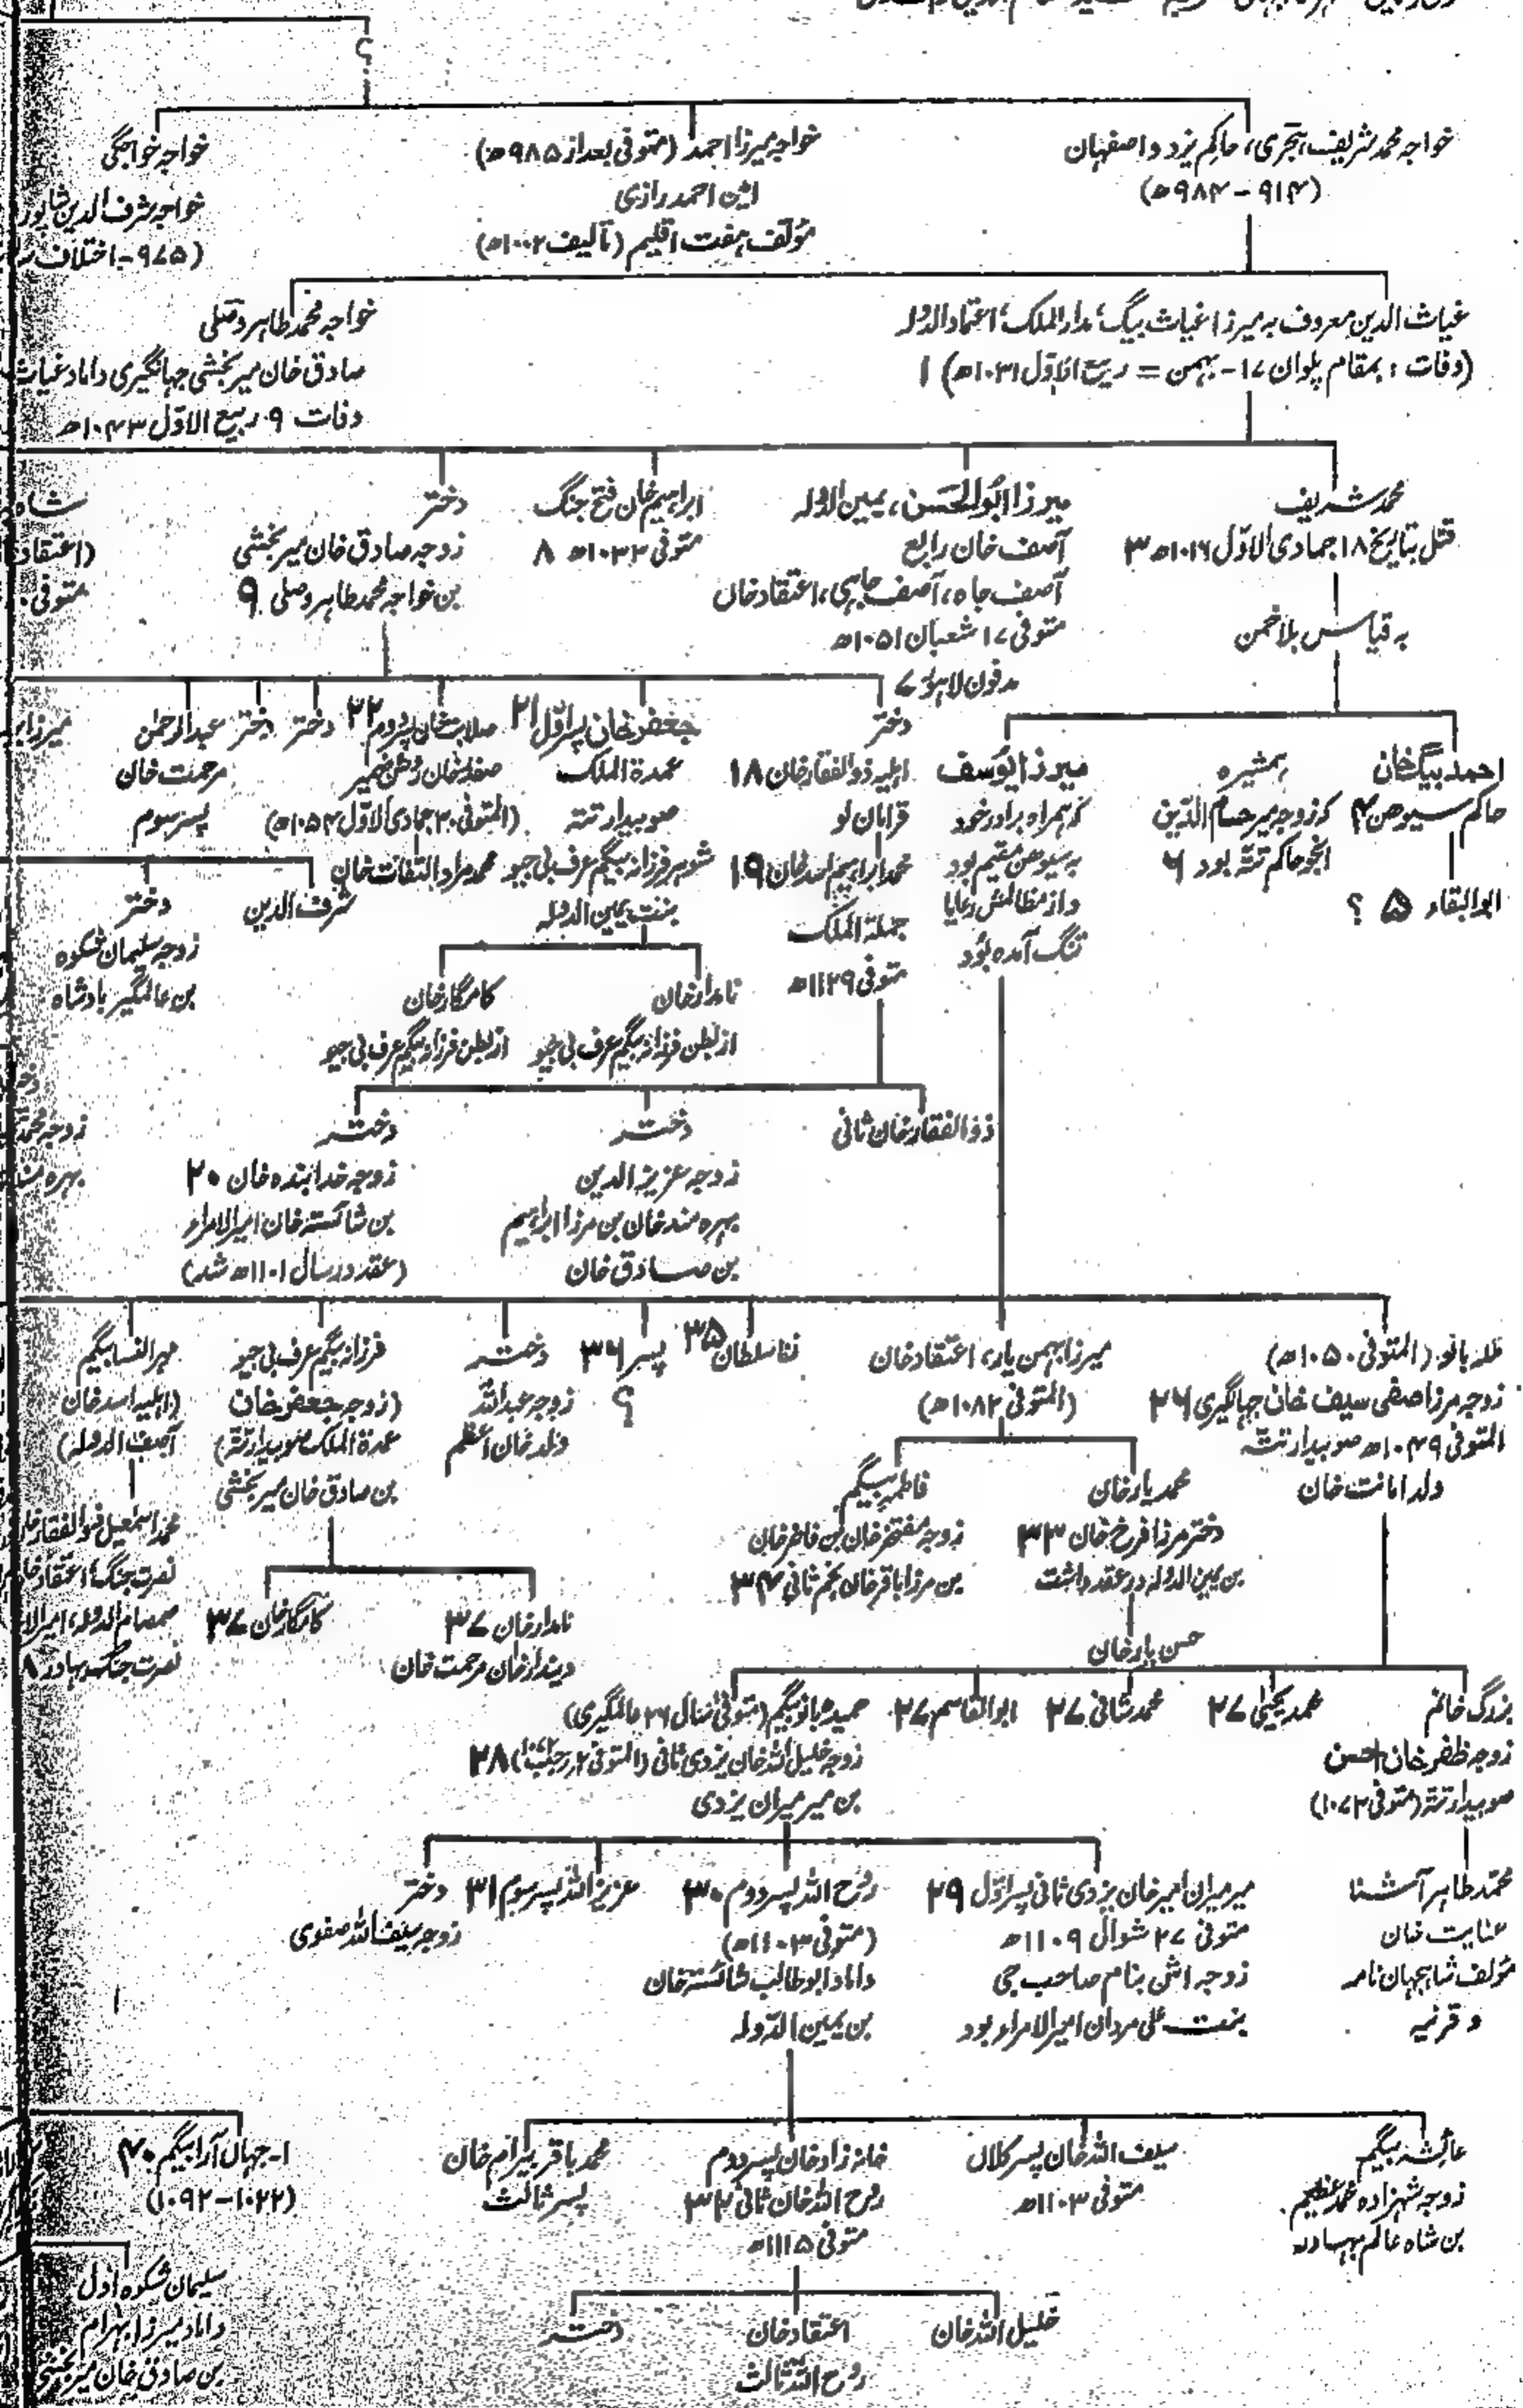 ؟
خواجه محمد شریف ہجری، حاکم یزد و اصفہان
(۹۱۴ – ۹۸۴ھ)
خواجه میرزا احمد (متوفی بعد از ۹۸۵ھ)
امین احمد رازی
مؤلف ہفت اقلیم (تألیف ۱۰۰۲ھ)
خواجه خواجگی
خواجه شرف الدین شاپور
(۹۷۵ - اختلاف
غیاث الدین معروف به میرزا غیاث بیگ، مدار الملک، اعتماد الدوله
(وفات: بمقام پلوان ۱۷ - بہمن = ربیع الاوّل ۱۰۳۱ھ) ۱
خواجه محمد طاہر وصلی
صادق خان میر بخشی جہانگیری داماد غیاث
وفات ۹ ربیع الاوّل ۱۰۴۳ھ
محمد شریف
قتل بتاریخ ۱۸ جمادی الاوّل ۱۰۱۶ھ ۳
به قیاس بلاخمن
میرزا ابوالحسن، یمین الدوله
آصف خان رابع
آصف جاه، آصف جاہی، اعتقاد خان
متوفی ۱۷ شعبان ۱۰۵۱ھ
مدفون لاہور ۷
ابراہیم خان فتح جنگ
متوفی ۱۰۳۲ھ ۸
دختر
زوجه صادق خان میر بخشی
بن خواجه محمد طاہر وصلی ۹
شاه
(اعتقاد
متوفی
احمد بیگ خان
حاکم سیوھن ۴
ابوالبقاء ۵ ؟
ہمشیره
که زوجه میر حسام الدّین
انجو حاکم تته بود ۶
میرزا یوسف
که ہمراه برادر خود
به سیوھن مقیم بود
و از مظالمش رعایا
تنگ آمده بود
دختر
اہلیه ذوالفقار خان ۱۸
قرامان لو
محمد ابراہیم اسد خان ۱۹
جملة الملک
متوفی ۱۱۲۹ھ
جعفر خان پسر اوّل ۲۱
عمدة الملک
صوبیدار تته
شوہر فرزانه بیگم عرف بی جیو
بنت یمین الدوله
صلابت خان پسر دوم ۲۲
صفدر خان روشن ضمیر
(المتوفی ۲۰ جمادی الاوّل ۱۰۵۴ھ)
محمد مراد التفات خان
دختر
دختر
عبدالرحمٰن
مرحمت خان
پسر سوم
میرزا
شرف الدین
دختر
زوجه سلیمان شکوه
بن عالمگیر بادشاه
نامدار خان
از بطن فرزانه بیگم عرف بی جیو
کامگار خان
از بطن فرزانه بیگم عرف بی جیو
ذوالفقار خان ثانی
دختر
زوجه عزیز الدین
بہره مند خان بن مرزا ابراہیم
بن صادق خان
دختر
زوجه خدا بنده خان ۲۰
بن شائسته خان امیر الامراء
(عقد در سال ۱۱۰۱ھ شد)
زوجه محمد
بہره
بانو (المتوفی ۱۰۵۰ھ)
زوجه مرزا صفی سیف خان جہانگیری ۲۶
المتوفی ۱۰۴۹ھ صوبیدار تته
ولد امانت خان
میرزا بہمن یار، اعتقاد خان
(المتوفی ۱۰۸۲ھ)
سلطان ۳۵
پسر ۳۶
؟
دختر
زوجه عبدالله
ولد خان اعظم
فرزانه بیگم عرف بی جیو
(زوجه جعفر خان
عمدة الملک صوبیدار تته)
بن صادق خان میر بخشی
مہر النسا بیگم
(اہلیه اسد خان
آصف الدوله)
محمد یار خان
دختر مرزا فرخ خان ۳۳
بن یمین الدوله در عقد داشت
حسن یار خان
فاطمه بیگم
زوجه مفتخر خان بن فاخر خان
بن مرزا باقر خان نجم ثانی ۳۴
نامدار خان ۳۷
دیندار خان مرحمت خان
کامگار خان ۳۷
محمد اسمعیل ذوالفقار خان
نصرت جنگ، اعتقاد خان
صمصام الدوله، امیر الا
نصرت جنگ بہادر ۸
بزرگ خانم
زوجه ظفر خان احسن
صوبیدار تته (متوفی ۱۰۷۳)
محمد یحییٰ ۲۷
محمد شافی ۲۷
ابوالقاسم ۲۷
حمیده بانو بیگم (متوفی سال ۲۶ عالمگیری)
زوجه خلیل الله خان یزدی ثانی (المتوفی ۲ رجب) ۲۸
بن میر میران یزدی
محمد طاہر آشنا
عنایت خان
مؤلف شاہجہان نامه
و قرنیه
میر میران امیر خان یزدی ثانی پسر اوّل ۲۹
متوفی ۲۷ شوال ۱۱۰۹ھ
زوجه اش بنام صاحب جی
بنت علی مردان امیر الامراء بود
روح الله پسر دوم ۳۰
(متوفی ۱۱۰۳ھ)
داماد ابو طالب شائسته خان
بن یمین الدّوله
عزیز الله پسر سوم ۳۱
دختر
زوجه سیف الله صفوی
عائشه بیگم
زوجه شہزاده محمد عظیم
بن شاه عالم بہادر
سیف الله خان پسر کلاں
متوفی ۱۱۰۳ھ
خانه زاد خان پسر دوم
روح الله خان ثانی ۳۲
متوفی ۱۱۱۵ھ
محمد باقر بیرام خان
پسر ثالث
۱- جہاں آرا بیگم ۴۰
(۱۰۲۲–۱۰۹۲)
خلیل الله خان
اعتقاد خان
روح الله ثالث
دختر
سلیمان شکوه اوّل
داماد میرزا بہرام
بن صادق خان میر بخشی